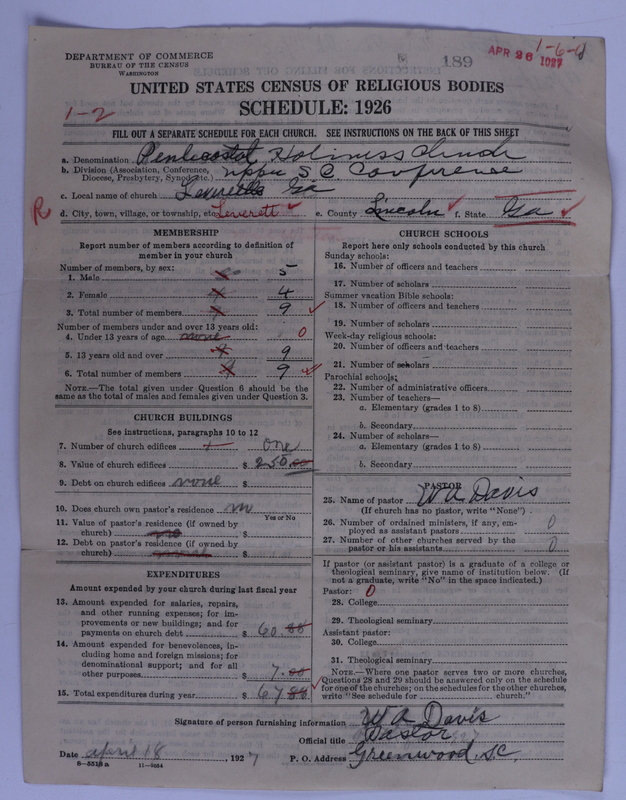 DEPARTMENT OF COMMERCE
BUREAU OF THE CENSUS
WASHINGTON
189
APR 26 1927
1-6-
UNITED STATES CENSUS OF RELIGIOUS BODIES
SCHEDULE: 1926
1-2
FILL OUT A SEPARATE SCHEDULE FOR EACH CHURCH. SEE INSTRUCTIONS ON THE BACK OF THIS SHEET
a. Denomination Pentecostal Holiness Church
b. Division (Association, Conference, Diocese, Presbytery, Synod, etc.) upper S C. Conference
c. Local name of church Leveretts Ga
R
d. City, town, village, or township, etc. Leverett e. County Lincoln f. State Ga
MEMBERSHIP
Report number of members according to definition of
member in your church
Number of members, by sex:
1. Male 5
2. Female 4
3. Total number of members 9
Number of members under and over 13 years old:
4. Under 13 years of age none 0
5. 13 years old and over 9
6. Total number of members 9
NOTE.—The total given under Question 6 should be the
same as the total of males and females given under Question 3.
CHURCH BUILDINGS
See instructions, paragraphs 10 to 12
7. Number of church edifices one
8. Value of church edifices $ 250.00
9. Debt on church edifices none $
10. Does church own pastor's residence no
Yes or No
11. Value of pastor's residence (if owned by
church) $
12. Debt on pastor's residence (if owned by
church) $
EXPENDITURES
Amount expended by your church during last fiscal year
13. Amount expended for salaries, repairs,
and other running expenses; for im-
provements or new buildings; and for
payments on church debt $ 60.00
14. Amount expended for benevolences, in-
cluding home and foreign missions; for
denominational support; and for all
other purposes $ 7.00
15. Total expenditures during year $ 67.00
CHURCH SCHOOLS
Report here only schools conducted by this church
Sunday schools:
16. Number of officers and teachers
17. Number of scholars
Summer vacation Bible schools:
18. Number of officers and teachers
19. Number of scholars
Week-day religious schools:
20. Number of officers and teachers
21. Number of scholars
Parochial schools:
22. Number of administrative officers
23. Number of teachers—
a. Elementary (grades 1 to 8)
b. Secondary
24. Number of scholars—
a. Elementary (grades 1 to 8)
b. Secondary
PASTOR
25. Name of pastor W A Davis
(If church has no pastor, write "None")
26. Number of ordained ministers, if any, em-
ployed as assistant pastors 0
27. Number of other churches served by the
pastor or his assistants 0
If pastor (or assistant pastor) is a graduate of a college or
theological seminary, give name of institution below. (If
not a graduate, write "No" in the space indicated.)
Pastor: 0
28. College
29. Theological seminary
Assistant pastor:
30. College
31. Theological seminary
NOTE.—Where one pastor serves two or more churches,
Questions 28 and 29 should be answered only on the schedule
for one of the churches; on the schedules for the other churches,
write "See schedule for church."
Signature of person furnishing information W A Davis
Official title Pastor
Date april 18, 1927 P. O. Address Greenwood, S.C.
8-5518a 11-9054